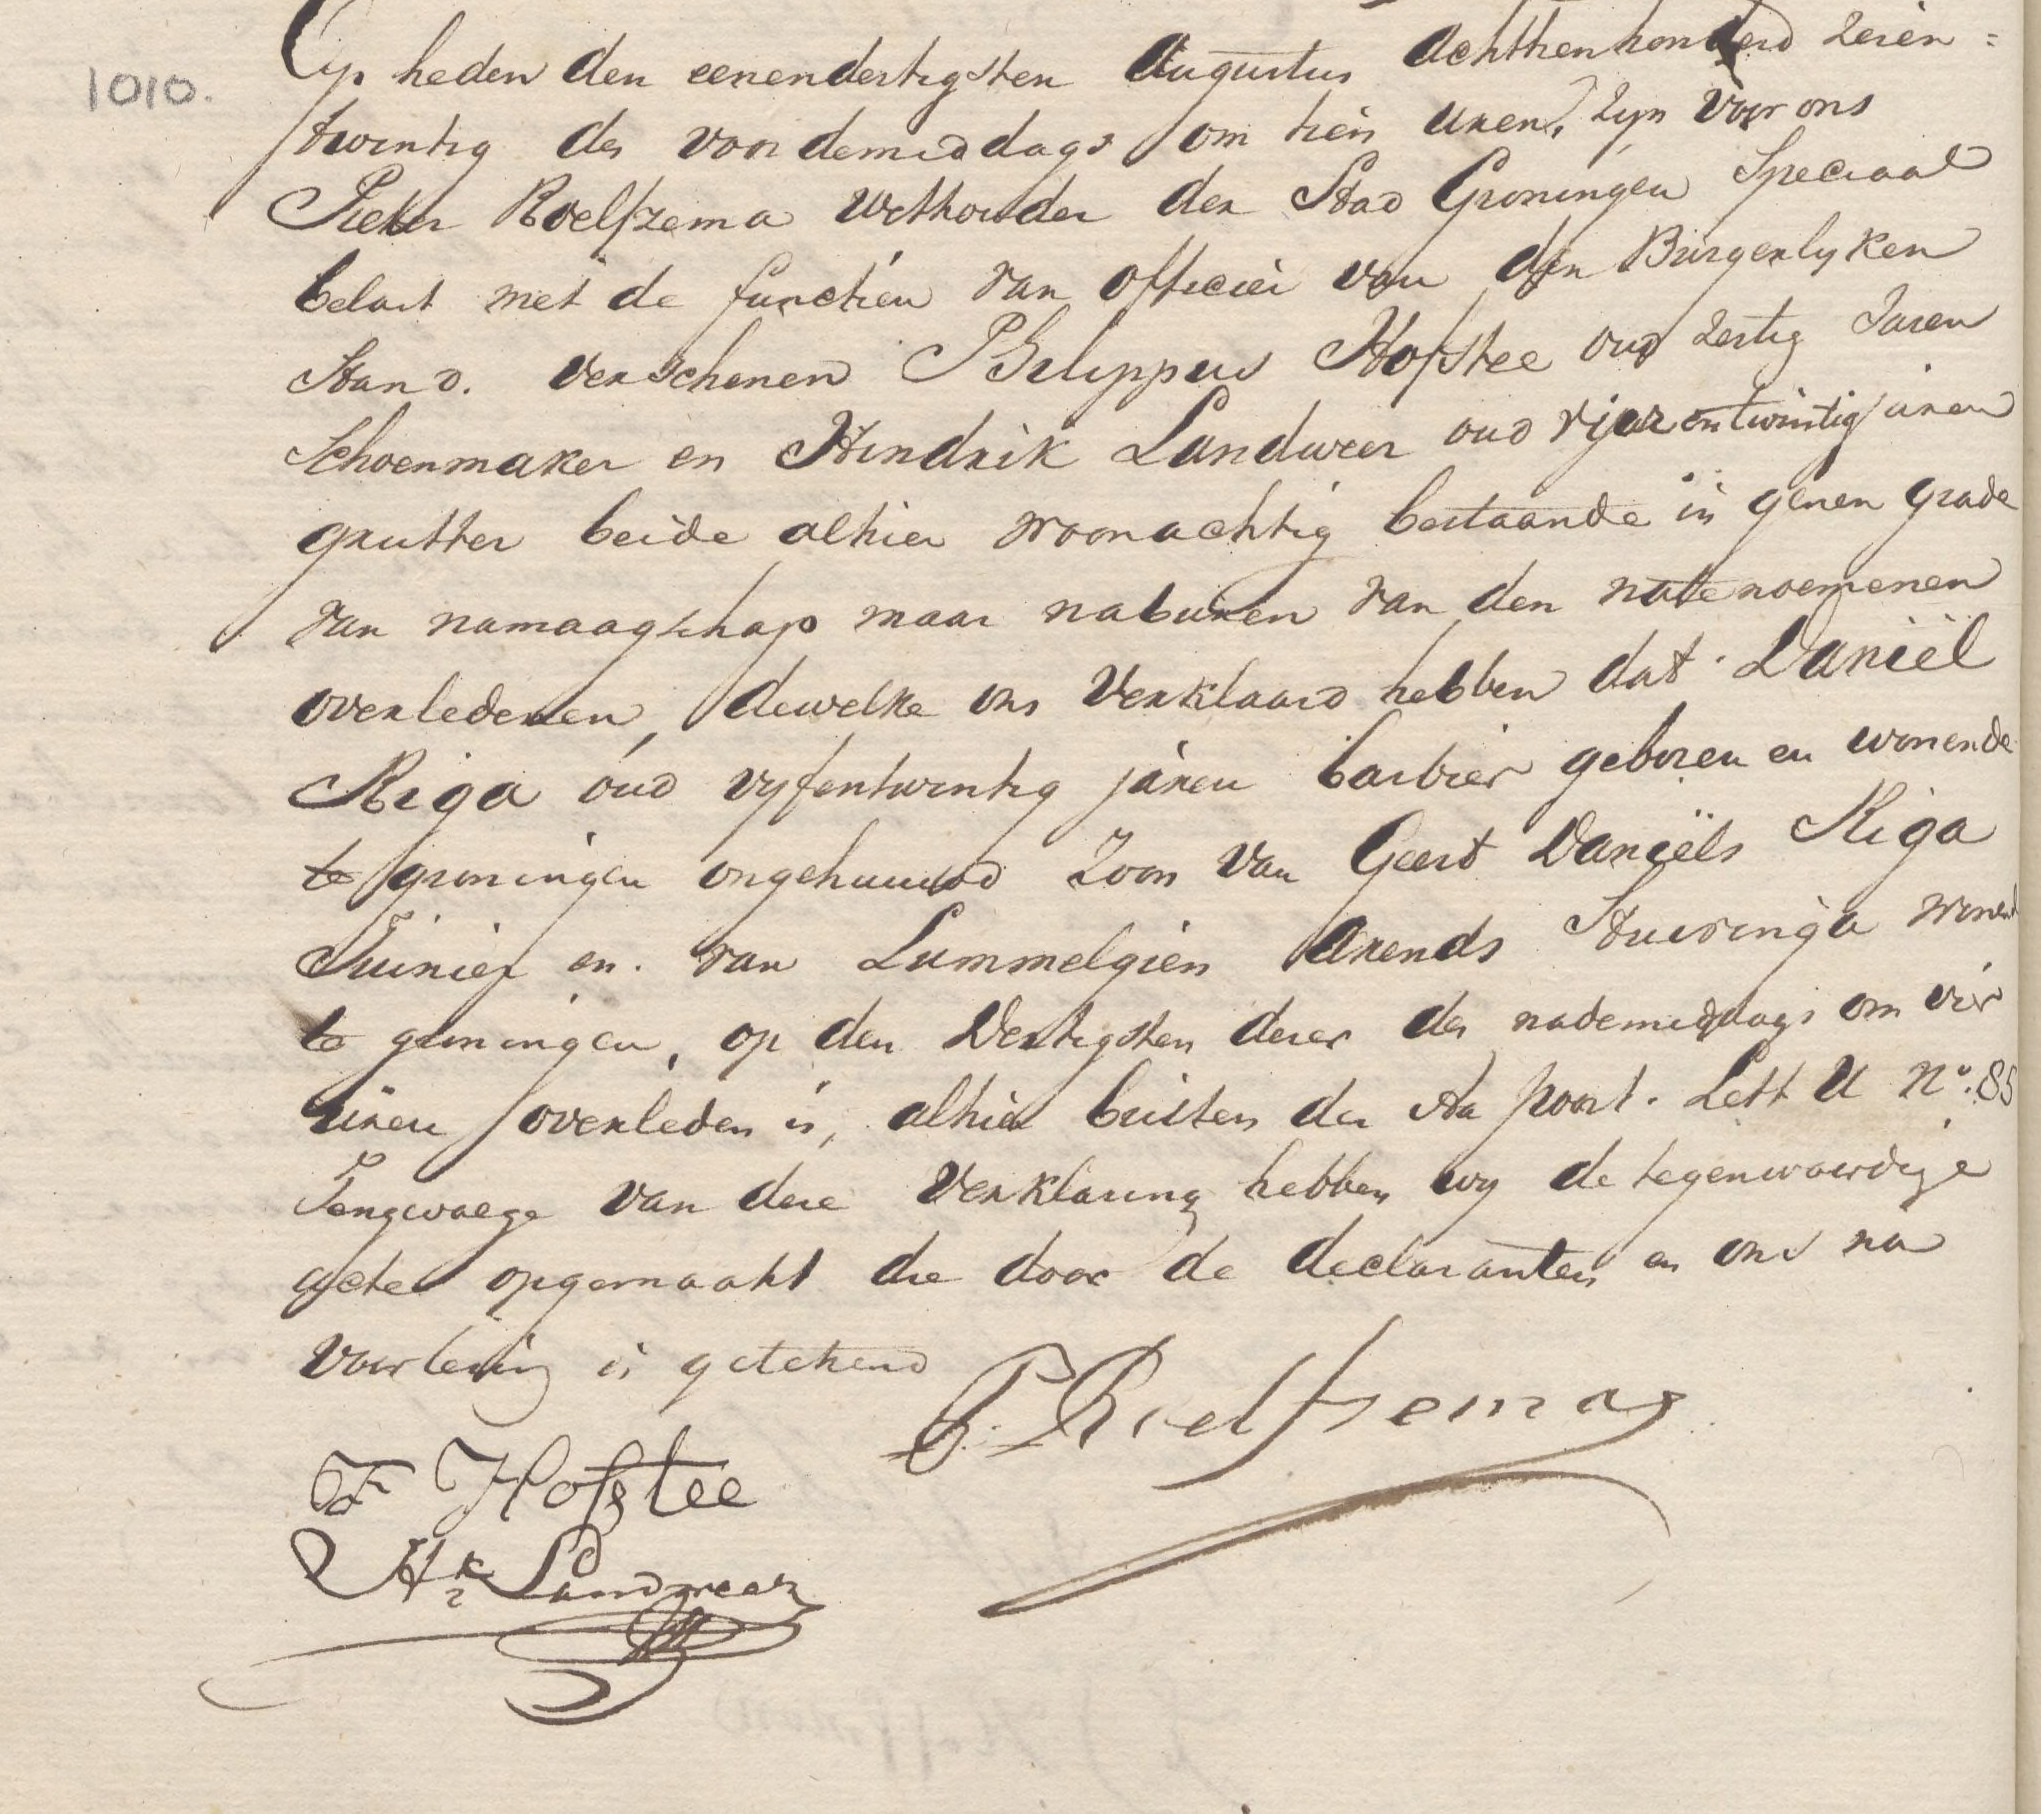 1010.
Op heden den eenendertigsten Augustus Achttienhonderd zesen=
twintig des voordemiddags om tien uren, zyn voor ons
Pieter Roelfzema Wethouder der Stad Groningen Speciaal
belast met de functien van officier van den Burgerlyken
Stand. verschenen Philippus Hofstee oud zestig Jaren
Schoenmaker en Hindrik Landweer oud entwintig jaren
grutter beide alhier woonachtig bestaande in genen grade
van namaagschap maar naburen van den natenoemenen
overledenen, dewelke ons verklaard hebben dat Daniël
Riga oud vyfentwintig jaren barbier geboren en wonende
te groningen ongehuwd Zoon van Geert Daniëls Riga
Tuinier en van Lammelgien Arends Stuivinga
te groningen, op den Dertigsten dezer des nademiddags om vier
uren overleden is, alhier buiten der Aa poort. Lett U No. 85
Tengevolge van deze verklaring hebben wy de tegenwoordige
acte opgemaakt die door de declaranten en ons na
voorlezing is getekend
P. Roelfsema
F Hofstee
Hk Landweer